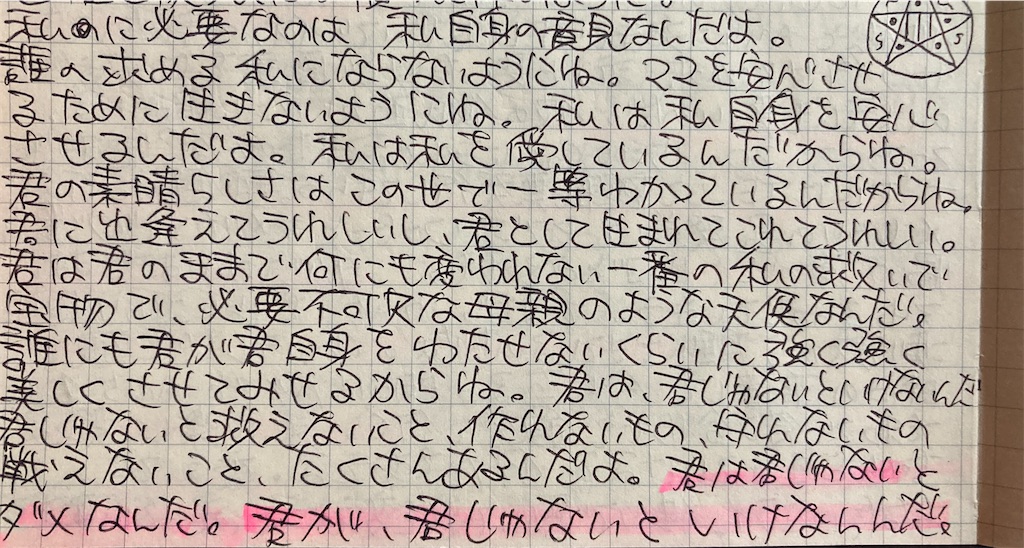 私のに必要なのは 私自身の意見なんだよ。
誰の求める私にならないようにね。ママを安心させ
るために生きないようにね。私は私自身を安心
させるんだよ。私は私を愛しているんだからね。
君の素晴らしさはこの世で一等わかっているんだからね。
君に出逢えてうれしいし、君として生まれてこれてうれしい。
君は君のままで何にも変われない一番の私の救いで
宝物で、必要不可欠な母親のような天使なんだ。
誰にも君が君自身をわたせないくらいに強く強く
美しくさせてみせるからね。君は、君じゃないといけないんだ
君じゃないと救えないこと、作れないもの、母れないもの
戦えないこと、たくさんあるんだよ。君は君じゃないと
ダメなんだ。君が、君じゃないといけなんんだ。